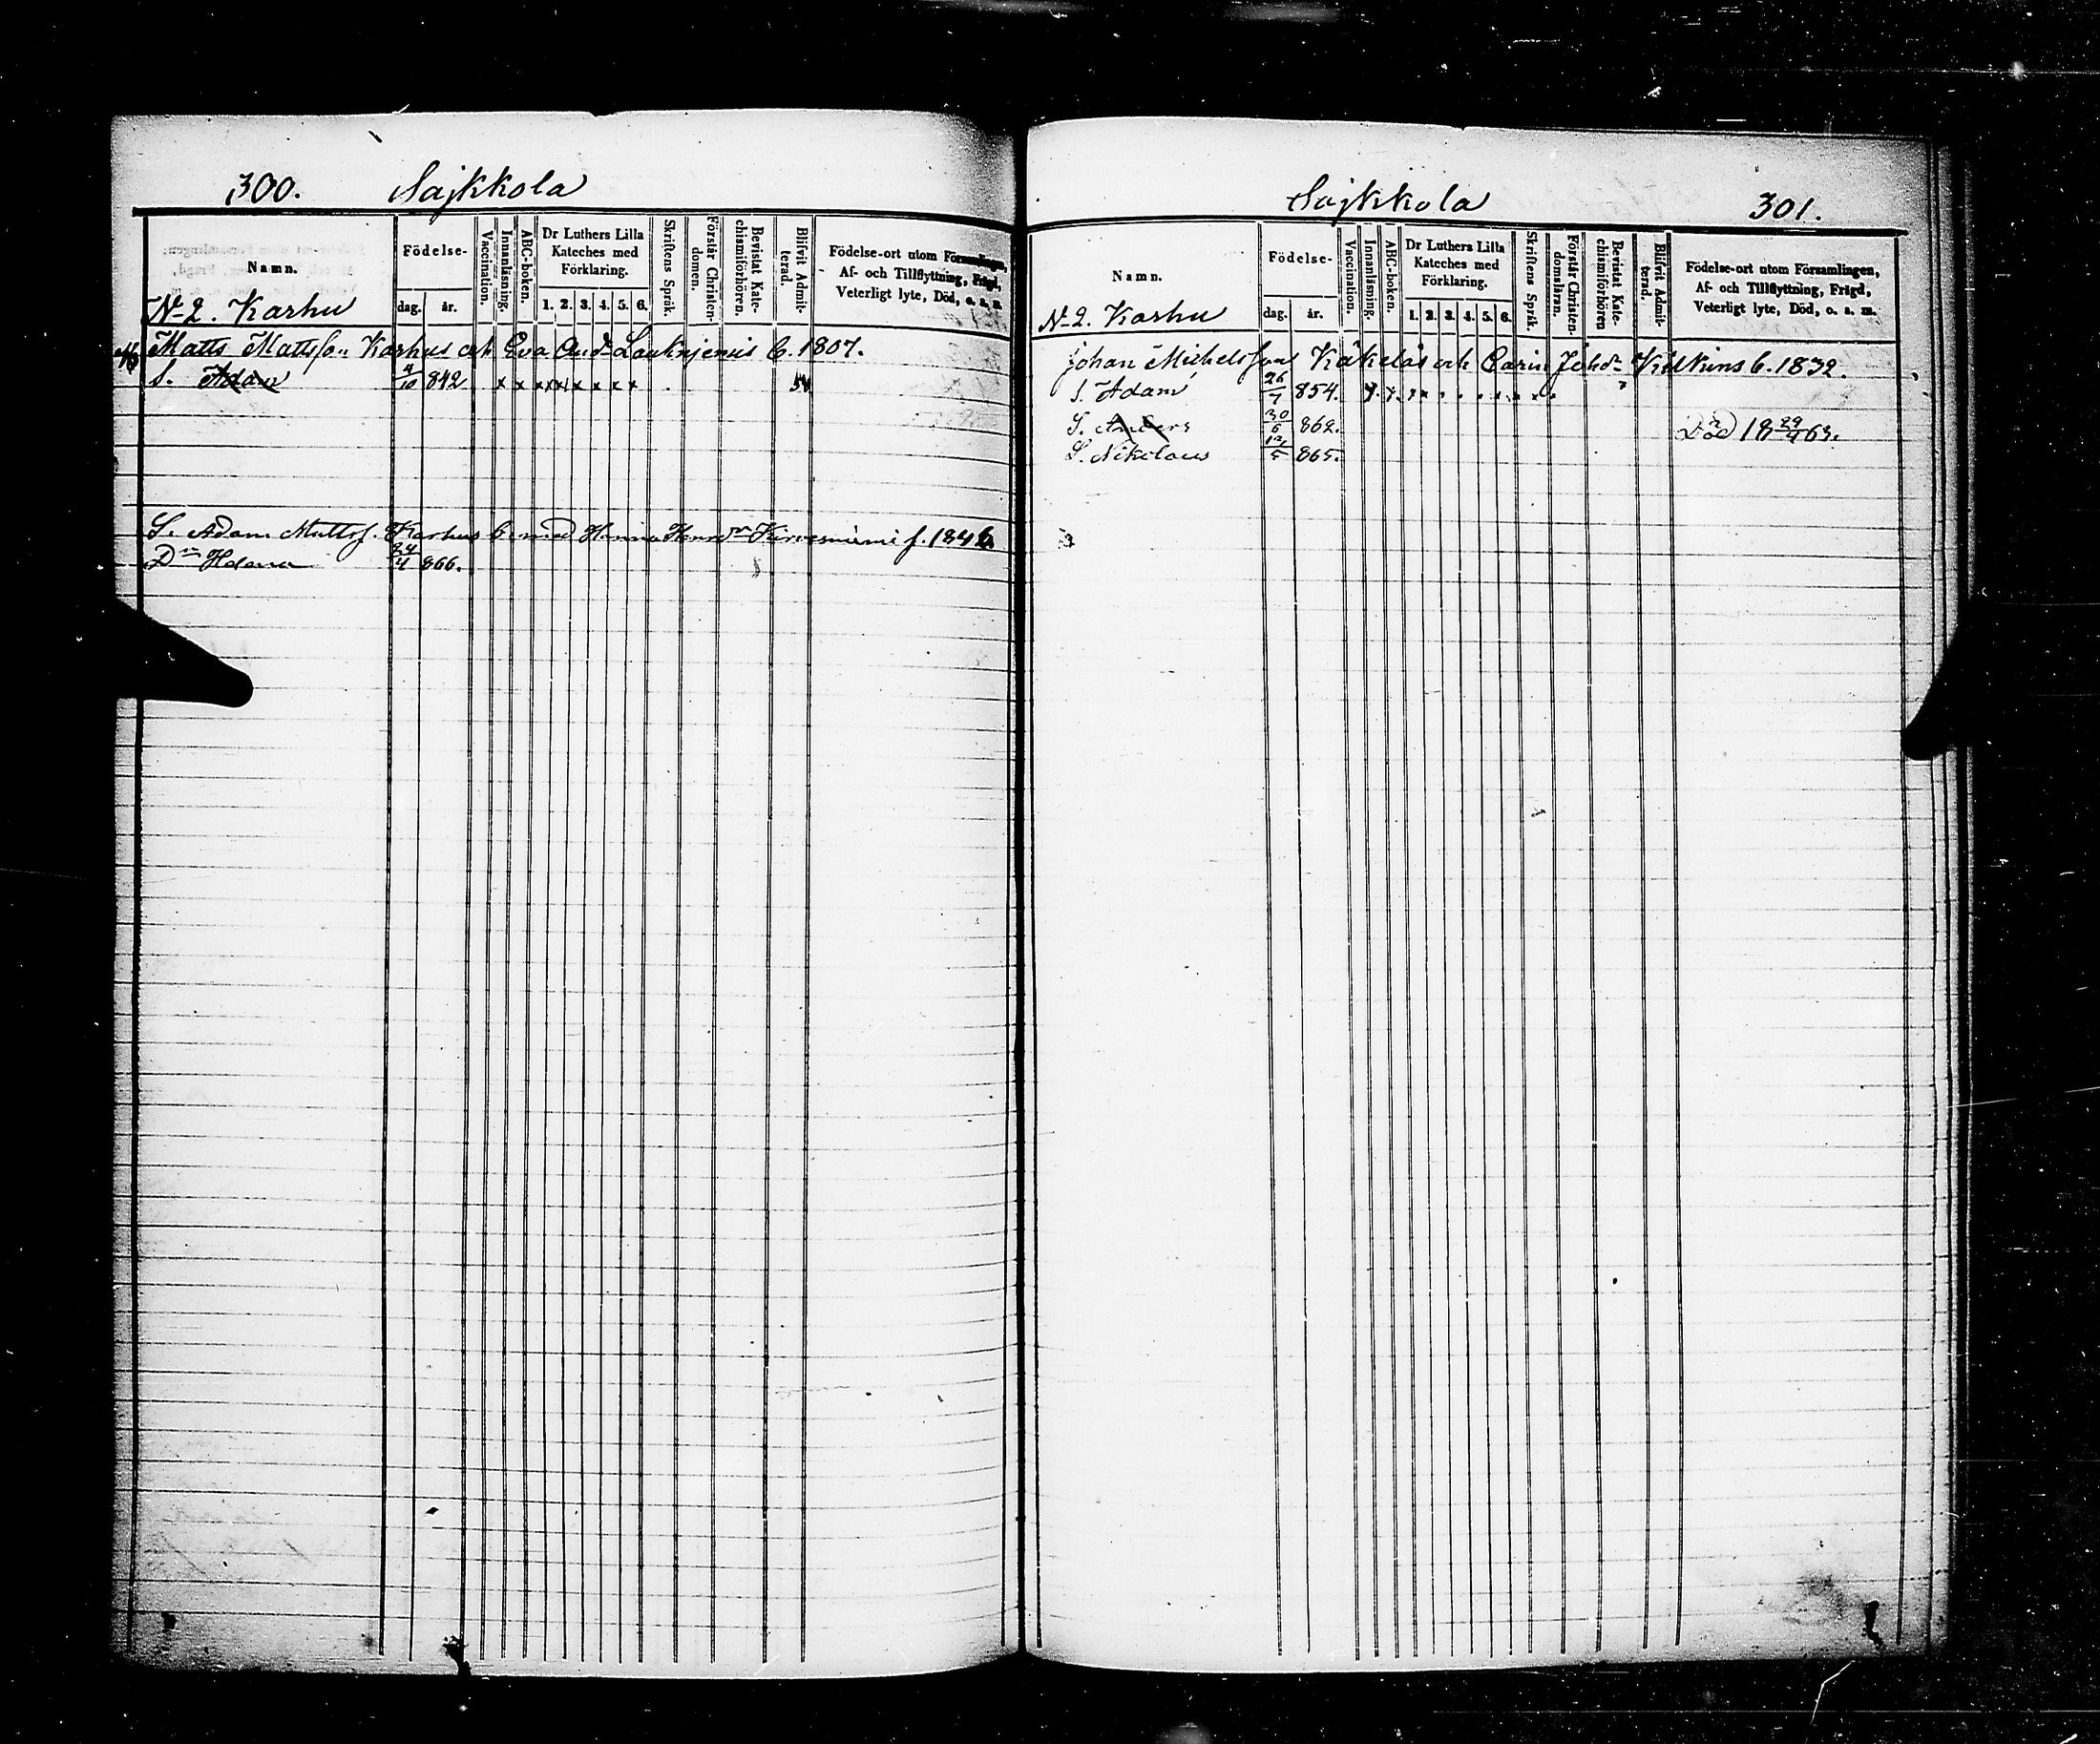 300. Sajkkola
Namn.
Födelse-
dag. år.
Vaccination.
Innanläsning.
ABC-boken.
Dr Luthers Lilla Kateches med Förklaring.
1. 2. 3. 4. 5. 6.
Skriftens Språk.
Förstår Christendomen.
Bevistat Katechismiförhören.
Blifvit Admitterad.
Födelse-ort utom Församlingen,
Af- och Tillflyttning, Frägd,
Veterligt lyte, Död, o. s. m.
N-2. Karhu
Matts Mattsson Karhus och Eva And. b. 1807.
S. Adam 4/10 842. x x x x x x x x x 54
S. Adam Mattsf. Karhus b. med Hanna f. 1846
Dr Helena 24/4 866.
Sajkkola 301.
Namn.
Födelse-
dag. år.
Vaccination.
Innanläsning.
ABC-boken.
Dr Luthers Lilla Kateches med Förklaring.
1. 2. 3. 4. 5. 6.
Skriftens Språk.
Förstår Christendomsläran.
Bevistat Katechismiförhören
Blifvit Admitterad.
Födelse-ort utom Församlingen,
Af- och Tillflyttning, Frägd,
Veterligt lyte, Död, o. s. m.
N-2. Karhu
Johan Michelsson Käkeläs och Carin Joh.dr Kilkins b. 1832.
S. Adam 26/7 854.
S. Anders 30/6 862. Död 18 29/9 63.
S. Nikolaus 12/5 865.